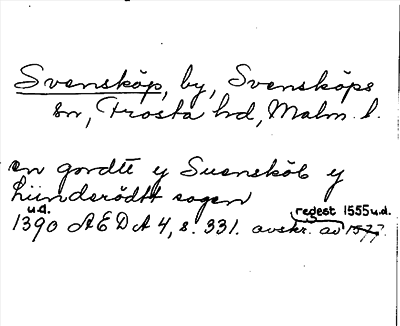 Svensköp, by, Svensköps
sn, Frosta hd, Malm. l.
en gordtt y Suensköb y
hiindsrödtt sogen
u.d. regest 1555 u.d.
1390 AEDA 4, s. 331. avskr. av 1577.